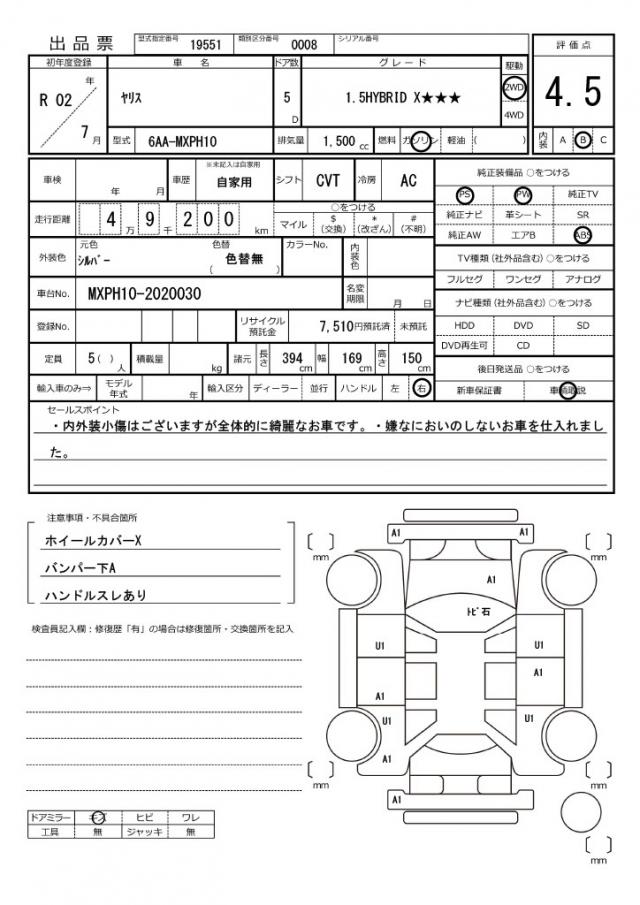 出品票 型式指定番号 19551 類別区分番号 0008 シリアル番号
評価点
初年度登録 車名 ドア数 グレード 駆動
R 02 年 7 月 ヤリス 5 D 1.5HYBRID X★★★ 2WD 4WD
4.5
型式 6AA-MXPH10 排気量 1,500 cc 燃料 ガソリン 軽油 ( )
内装 A B C
車検 年 月 車歴 ※未記入は自家用 自家用 シフト CVT 冷房 AC
純正装備品 ○をつける
PS PW 純正TV
走行距離 4 万 9 千 2 0 0 km ○をつける マイル $ (交換) * (改ざん) # (不明)
純正ナビ 革シート SR
純正AW エアB ABS
外装色 元色 シルバー 色替 ( 色替無 ) カラーNo. 内装色
TV種類 (社外品含む) ○をつける
フルセグ ワンセグ アナログ
車台No. MXPH10-2020030 名変期限 月 日
ナビ種類 (社外品含む) ○をつける
登録No. リサイクル預託金 7,510円預託済 未預託
HDD DVD SD
DVD再生可 CD
定員 5 ( ) 人 積載量 kg 諸元 長さ 394 cm 幅 169 cm 高さ 150 cm
後日発送品 ○をつける
輸入車のみ⇒ モデル年式 年 輸入区分 ディーラー 並行 ハンドル 左 右
新車保証書 車輌取説
セールスポイント
・内外装小傷はございますが全体的に綺麗なお車です。・嫌なにおいのしないお車を仕入れまし
た。
注意事項・不具合箇所
ホイールカバーX
バンパー下A
ハンドルスレあり
検査員記入欄：修復歴「有」の場合は修復箇所・交換箇所を記入
A1 A1
mm mm
A1
トビ石
U1 U1
A1
A1
U1 U1
A1
mm mm
A1
mm
ドアミラー キズ ヒビ ワレ
工具 無 ジャッキ 無